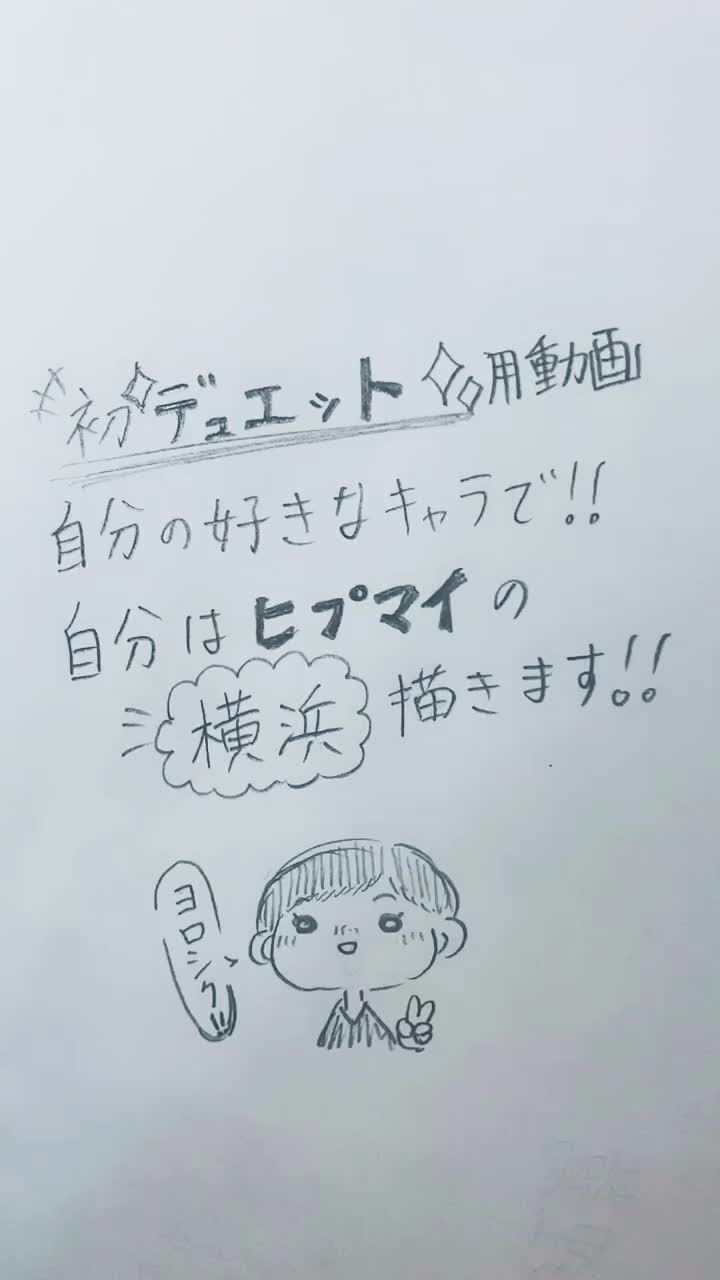 初デュエット用動画
自分の好きなキャラで!!
自分はヒプマイの
横浜描きます!!
ヨロシク!!